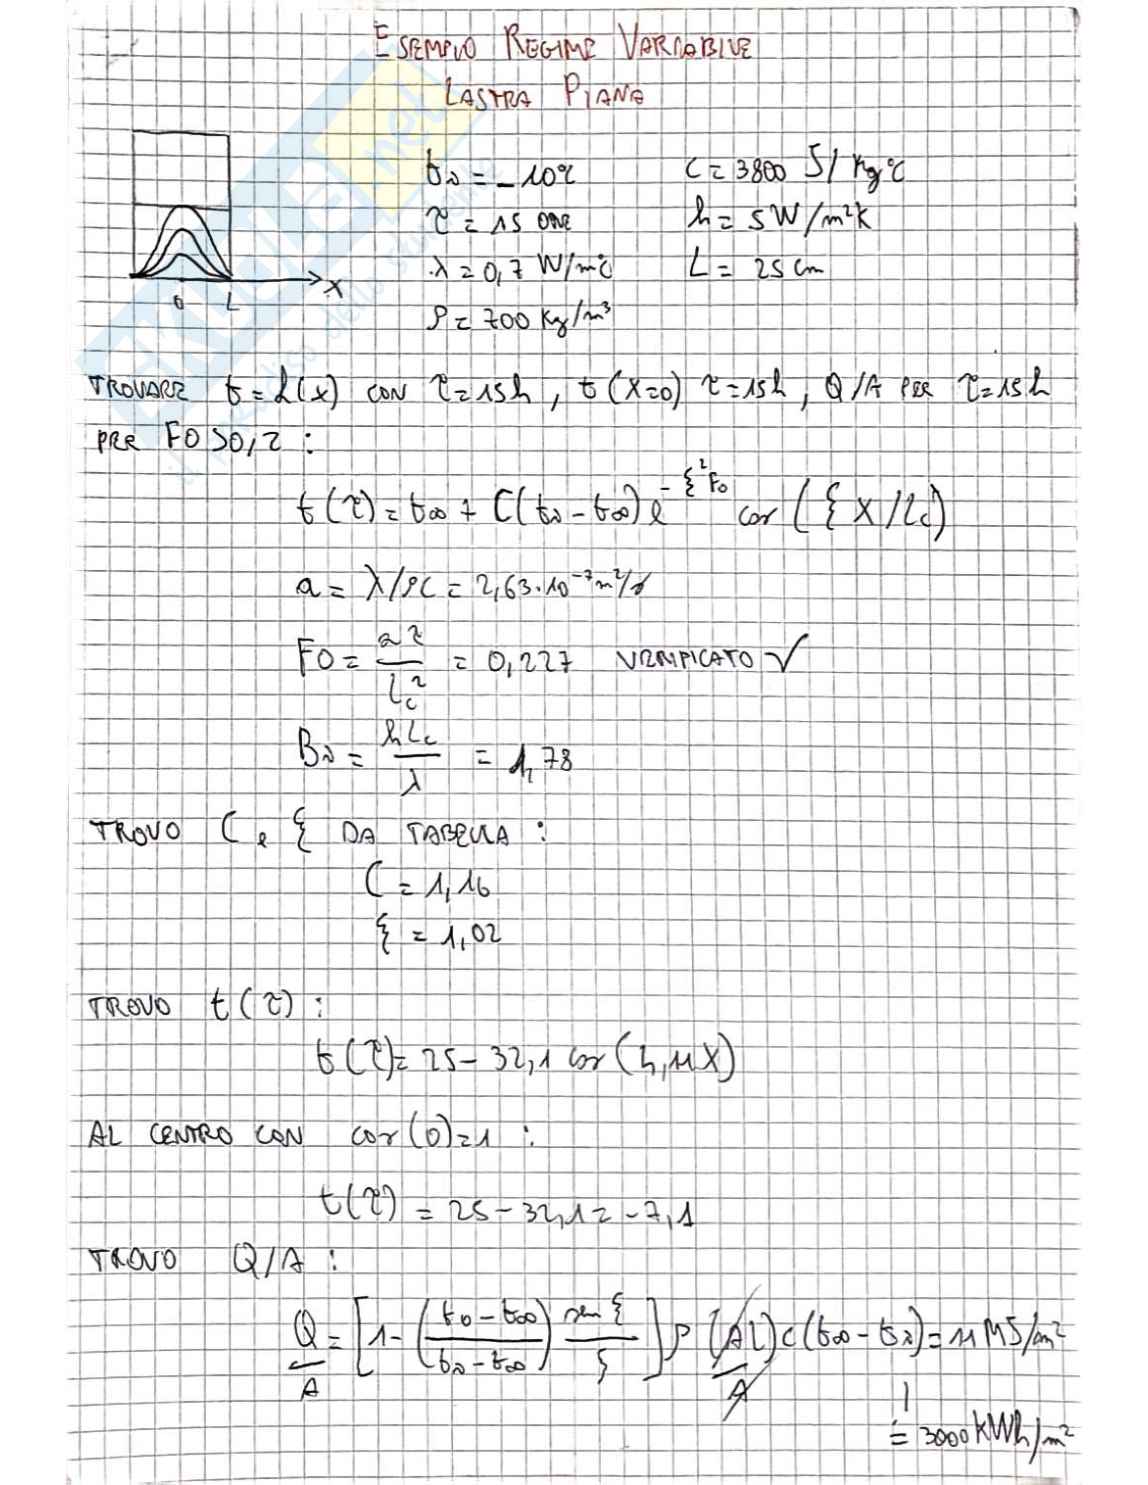 ESEMPIO REGIME VARIABILE
LASTRA PIANA
ti = -10°C    C = 3800 J/Kg°C
τ = 15 ORE    h = 5W/m²K
λ = 0,7 W/m°C    L = 25 cm
ρ = 700 Kg/m³
0 L X
TROVARE t = f(x) CON τ=15h, t(x=0) τ=15h, Q/A PER τ=15h
PER FO>0,2 :
t(τ) = t∞ + C(ti - t∞) e^-ξ²Fo cos(ξ X/Lc)
a = λ/ρC = 2,63·10⁻⁷ m²/s
FO = aτ/Lc² = 0,227 VERIFICATO √
Bi = hLc/λ = 1,78
TROVO C e ξ DA TABELLA :
C = 1,16
ξ = 1,02
TROVO t(τ) :
t(τ) = 25 - 32,1 cos(4,11X)
AL CENTRO CON cos(0)=1 :
t(τ) = 25 - 32,1 = -7,1
TROVO Q/A :
Q/A = [1 - (t0 - t∞/ti - t∞) sen ξ/ξ] ρ (AL)/A c(t∞ - ti) = 11 MJ/m²
= 3000 kWh/m²